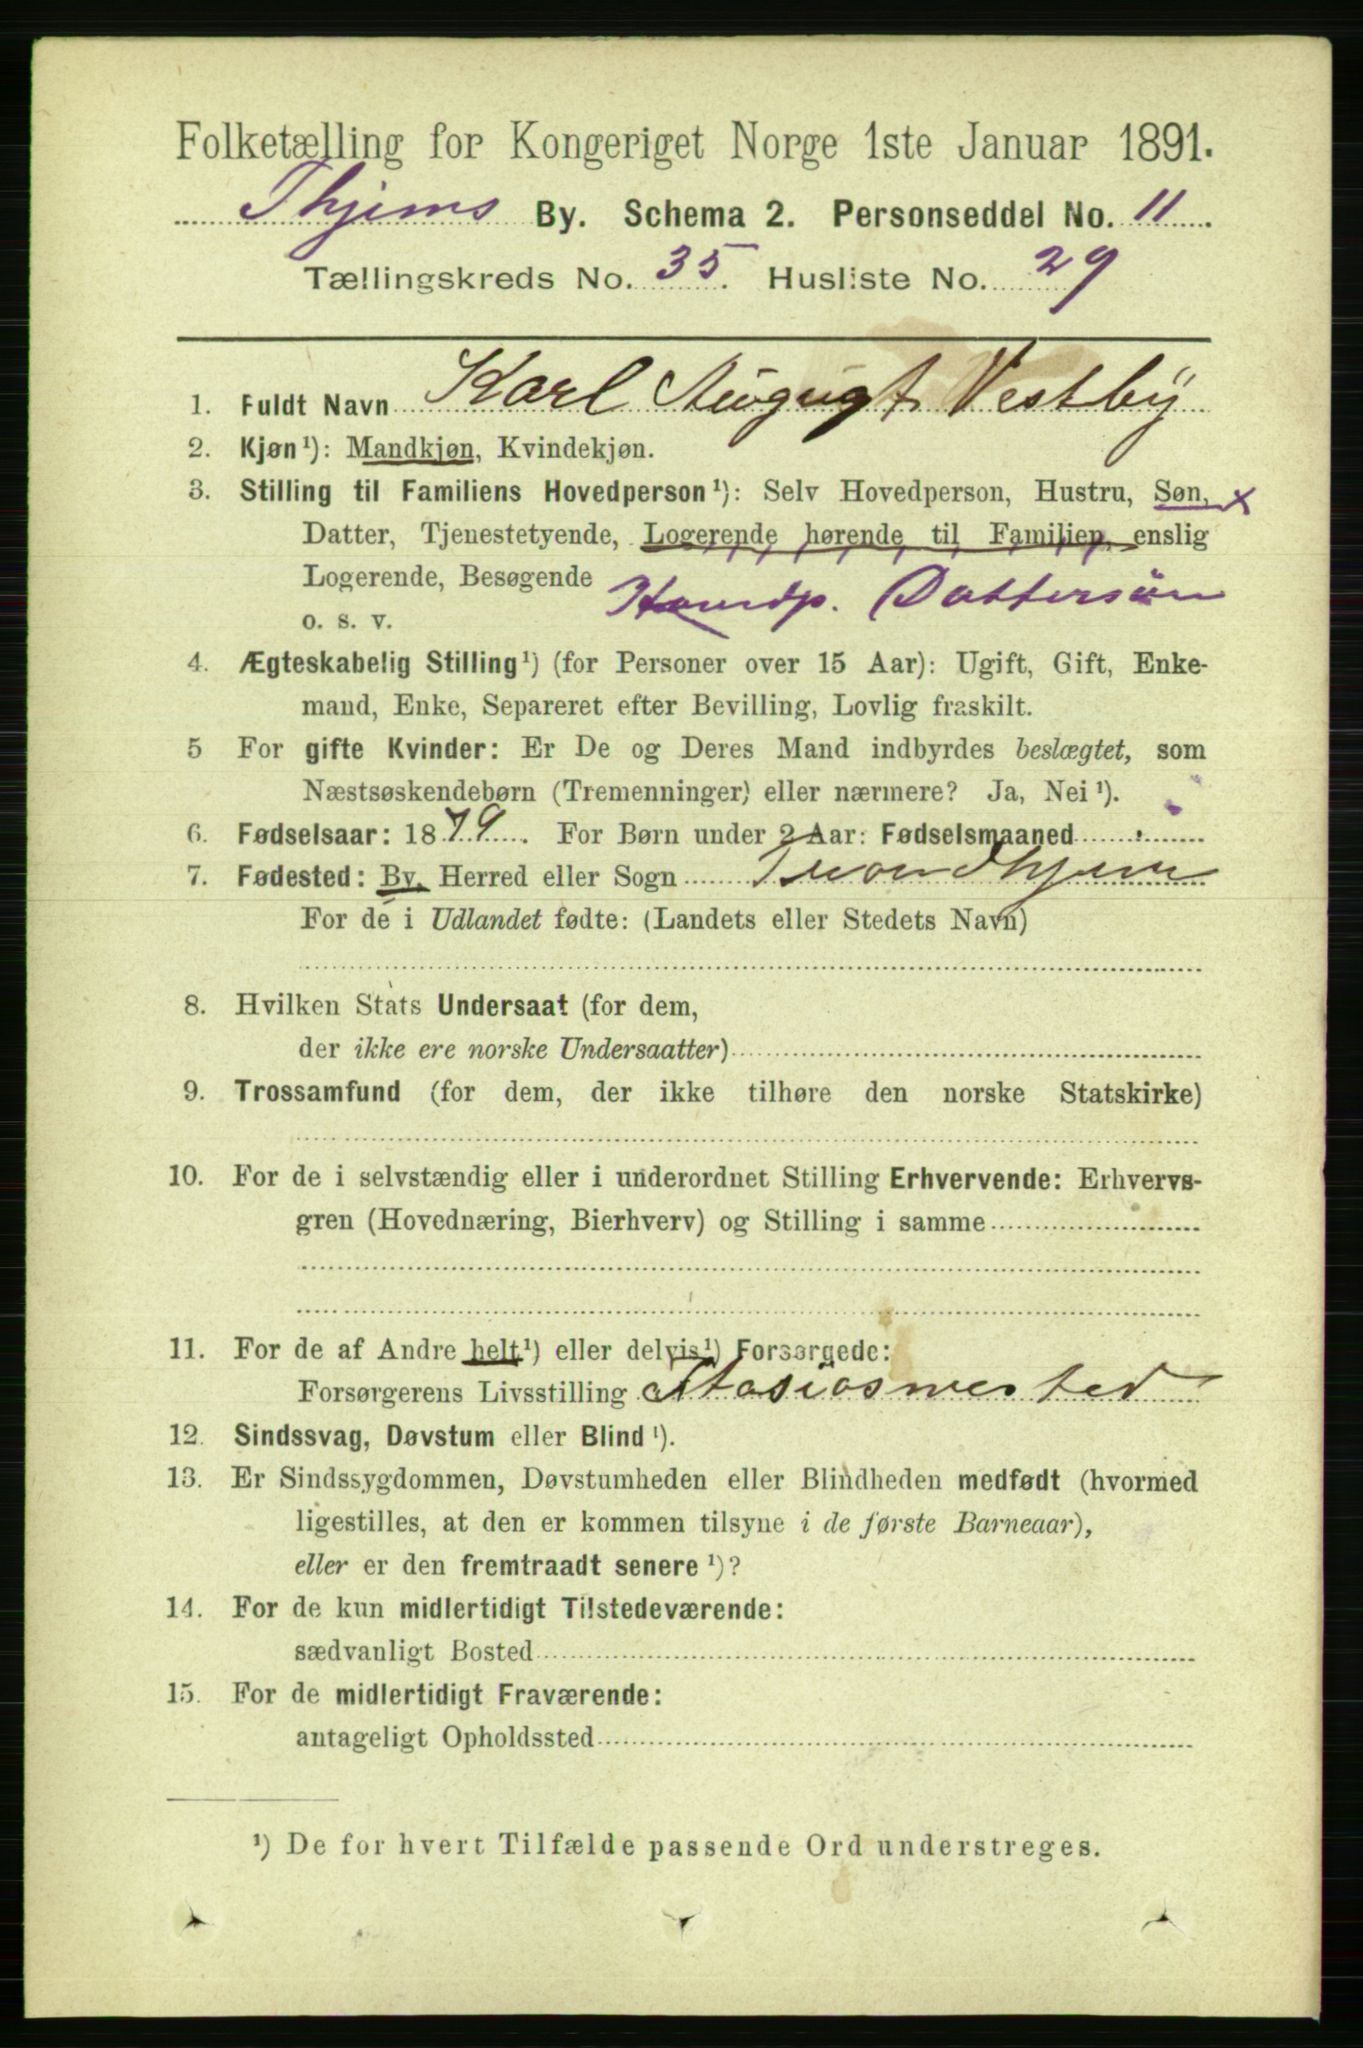 Folketælling for Kongeriget Norge 1ste Januar 1891.
Thjems By. Schema 2. Personseddel No. 11
Tællingskreds No. 35. Husliste No. 29
1. Fuldt Navn Karl August Vestby
2. Kjøn¹): Mandkjøn, Kvindekjøn.
3. Stilling til Familiens Hovedperson¹): Selv Hovedperson, Hustru, Søn, x
Datter, Tjenestetyende, Logerende hørende til Familien, enslig
Logerende, Besøgende Hovedp. Dattersøn
o. s. v.
4. Ægteskabelig Stilling¹) (for Personer over 15 Aar): Ugift, Gift, Enke-
mand, Enke, Separeret efter Bevilling, Lovlig fraskilt.
5 For gifte Kvinder: Er De og Deres Mand indbyrdes beslægtet, som
Næstsøskendebørn (Tremenninger) eller nærmere? Ja, Nei¹).
6. Fødselsaar: 1879. For Børn under 2 Aar: Fødselsmaaned
7. Fødested: By, Herred eller Sogn Trondhjem
For de i Udlandet fødte: (Landets eller Stedets Navn)
8. Hvilken Stats Undersaat (for dem,
der ikke ere norske Undersaatter)
9. Trossamfund (for dem, der ikke tilhøre den norske Statskirke)
10. For de i selvstændig eller i underordnet Stilling Erhvervende: Erhvervs-
gren (Hovednæring, Bierhverv) og Stilling i samme
11. For de af Andre helt¹) eller delvis¹) Forsørgede:
Forsørgerens Livsstilling
12. Sindssvag, Døvstum eller Blind¹).
13. Er Sindssygdommen, Døvstumheden eller Blindheden medfødt (hvormed
ligestilles, at den er kommen tilsyne i de første Barneaar),
eller er den fremtraadt senere¹)?
14. For de kun midlertidigt Tilstedeværende:
sædvanligt Bosted
15. For de midlertidigt Fraværende:
antageligt Opholdssted
¹) De for hvert Tilfælde passende Ord understreges.